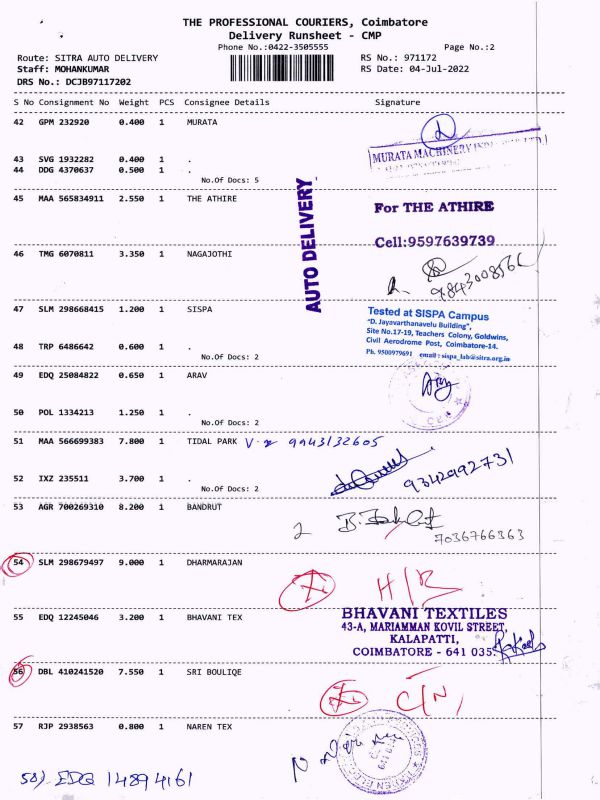 THE PROFESSIONAL COURIERS, Coimbatore
Delivery Runsheet - CMP
Phone No.:0422-3505555 Page No.:2
Route: SITRA AUTO DELIVERY RS No.: 971172
Staff: MOHANKUMAR RS Date: 04-Jul-2022
DRS No.: DCJB97117202
S No Consignment No Weight PCS Consignee Details Signature
42 GPM 232920 0.400 1 MURATA
MURATA MACHINERY
43 SVG 1932282 0.400 1 .
44 DDG 4370637 0.500 1 .
No.Of Docs: 5
AUTO DELIVERY
45 MAA 565834911 2.550 1 THE ATHIRE
For THE ATHIRE
Cell:9597639739
46 TMG 6070811 3.350 1 NAGAJOTHI
47 SLM 298668415 1.200 1 SISPA
Tested at SISPA Campus
"D. Jayavarthanavelu Building",
Site No.17-19, Teachers Colony, Goldwins,
Civil Aerodrome Post, Coimbatore-14.
Ph. 9500979691 email : sispa_lab@sitra.org.in
48 TRP 6486642 0.600 1 .
No.Of Docs: 2
49 EDQ 25084822 0.650 1 ARAV
50 POL 1334213 1.250 1 .
No.Of Docs: 2
51 MAA 566699383 7.800 1 TIDAL PARK 9943132605
52 IXZ 235511 3.700 1 .
9342992731
No.Of Docs: 2
53 AGR 700269310 8.200 1 BANDRUT
2
7036766363
54 SLM 298679497 9.000 1 DHARMARAJAN
55 EDQ 12245046 3.200 1 BHAVANI TEX
BHAVANI TEXTILES
43-A, MARIAMMAN KOVIL STREET,
KALAPATTI,
COIMBATORE - 641 035.
56 DBL 410241520 7.550 1 SRI BOULIQE
C/N
57 RJP 2938563 0.800 1 NAREN TEX
58) EDQ 14894161